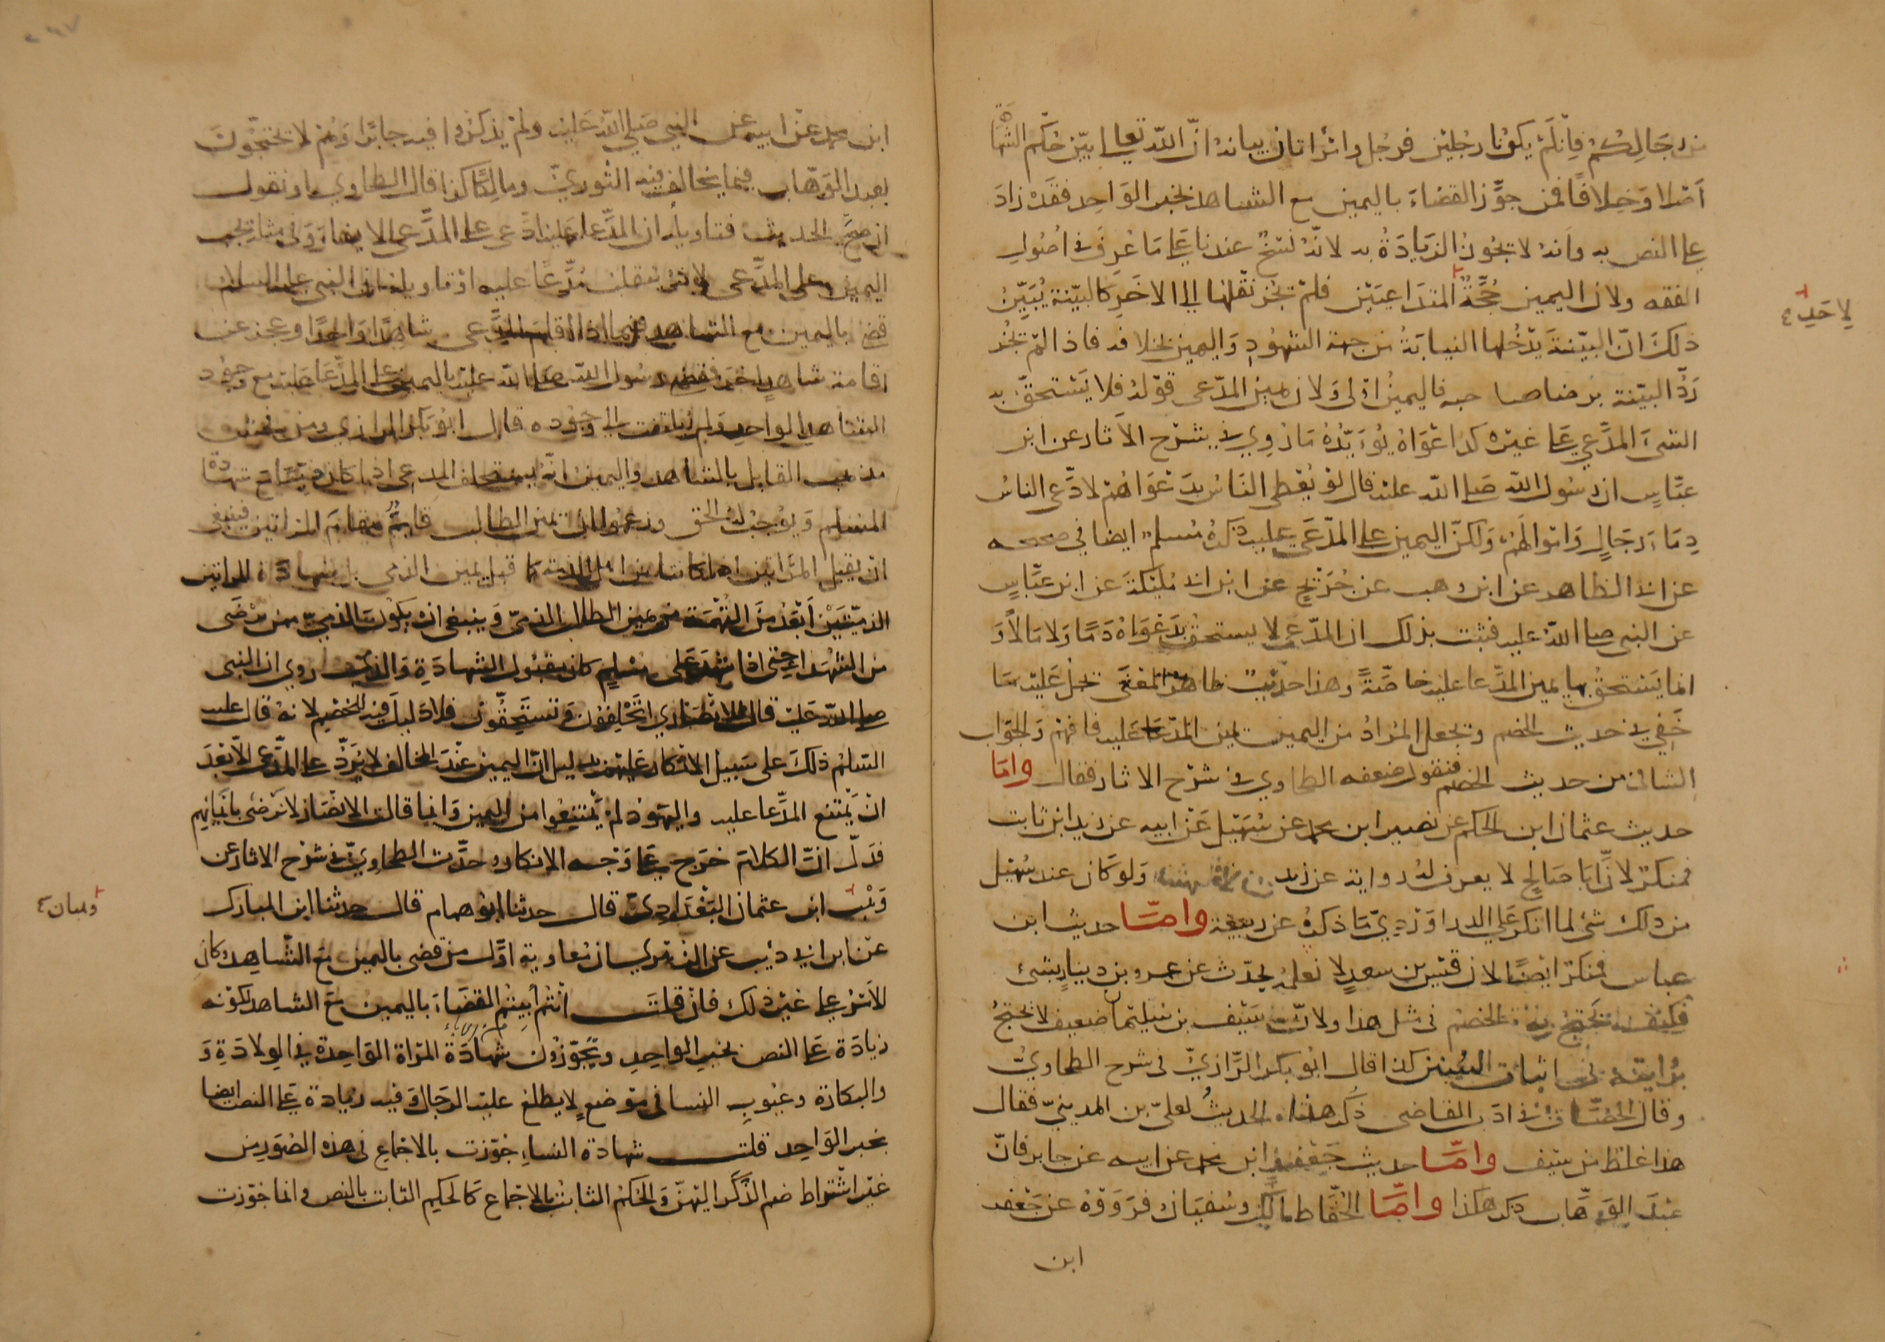 من رجالكم فان لم يكونا رجلين فرجل وامراتان بيانه ان الله تعالى بين حكم الشهادة
اصلا وخلافا فمن جوز القضاء باليمين مع الشاهد بخبر الواحد فقد زاد
على النص به وانه لا تجوز الزيادة به لانه نسخ عندنا على ما عرف في اصول
الفقه ولان اليمين حجة المتداعيين فلم تجز نقلها الى الاخر كالبينة يبين
لاحد
ذلك ان البينة يدخلها النيابة من جهة الشهود واليمين بخلافه فاذا لم تجز
رد البينة برضا صاحبه فاليمين اولى ولان يمين المدعي قوله فلا يستحق به
الشيء المدعي على غيره كدعواه يؤيده ما روي في شرح الاثار عن ابن
عباس ان رسول الله صلى الله عليه قال لو يعطى الناس بدعواهم لادعى الناس
دماء رجال واموالهم ولكن اليمين على المدعى عليه ذكره مسلم ايضا في صحيحه
عن ابي الطاهر عن ابن وهب عن جريج عن ابن ابي مليكة عن ابن عباس
عن النبي صلى الله عليه فثبت بذلك ان المدعي لا يستحق بدعواه دما ولا مالا و
انما يستحق بها يمين المدعا عليه خاصة وهذا حديث ظاهر المعنى نحمل عليه ما
خفي في حديث الخصم ونجعل المراد من اليمين يمين المدعا عليه فافهم والجواب
الثاني من حديث الخصم فنقول ضعفه الطحاوي في شرح الاثار فقال واما
حديث عثمان ابن الحكم عن زهير ابن محمد عن سهيل عن ابيه عن زيد ابن ثابت
فمنكر لان ابا صالح لا يعرف له رواية عن زيد ولو كان عند سهيل
من ذلك شئ لما انكر على الدراوردي ما ذكره عن ربيعة واما حديث ابن
عباس فمنكر ايضا لان قيس بن سعد لا نعلمه يحدث عن عمرو بن دينار بشئ
فكيف يحتج به الخصم في مثل هذا ولان سيف بن سليمان ضعيف لا يحتج
بروايته في اثبات السنن كذا قال ابو بكر الرازي في شرح الطحاوي
وقال القاضي ذكر هذا الحديث لعلي بن المديني فقال
هذا غلط من سيف واما حديث جعفر ابن محمد عن ابيه عن جابر فان
عبد الوهاب ذكر هكذا واما الحفاظ مالك وسفيان فرووه عن جعفر
ابن
ابن محمد عن ابيه عن النبي صلى الله عليه ولم يذكروا فيه جابرا وهم لا يحتجون
بعبد الوهاب فيما يخالف فيه الثوري ومالكا كذا قال الطحاوي او نقول
ان صح الحديث فتاويله ان المدعا عليه ادعى على المدعي الايفاء
اليمين على المدعي لانه مدعا عليه او تاويله ان النبي عليه السلام
قضى باليمين مع الشاهد فيما اذا اقام المدعي شاهدا واحدا وعجز عن
اقامة شاهد اخر فقضى رسول الله صلى الله عليه باليمين على المدعا عليه مع وجود
الشاهد الواحد ولم يلتفت الى وجوده قال ابو بكر الرازي ومن
مذهب القايل بالشاهد واليمين انه يستحلف المدعي اذا كان ذميا مع شهادة
المسلم ويوجب له الحق وزعموا ان يمين الطالب قايم مقام المراتين فينبغي
ان يقبل المراتين اذا كانتا من اهل الذمة كما قبل يمين الذمي بل شهادة المراتين
الذميتين ابعد من التهمة من يمين الطالب الذمي وينبغي ان يكون الذمي ممن يرضى
من الشهداء حتى اذا شهد على مسلم كان مقبول الشهادة والذي روي ان النبي
صلى الله عليه قال للانصاري اتحلفون وتستحقون فلا دليل فيه للخصم لانه قال عليه
السلام ذلك على سبيل الانكار عليهم بدليل ان اليمين عند المخالف لا يرد على المدعي الا بعد
ان يمتنع المدعا عليه واليهود لم يمتنعوا من اليمين وانما قالت الانصار لا نرضى بايمانهم
فدل ان الكلام خرج على وجه الانكار وحدث الطحاوي في شرح الاثار عن
وهب ابن عثمان البغدادي قال حدثنا ابو همام قال حدثنا ابن المبارك
وهبان
عن ابن ابي ذيب عن الزهري ان معاوية اول من قضى باليمين مع الشاهد وكان
الامر على غير ذلك فان قلت انتم ابيتم القضاء باليمين مع الشاهد لكونه
زيادة على النص بخبر الواحد وتجوزون شهادة المراة الواحدة في الولادة و
والبكارة وعيوب النسا في موضع لا يطلع عليه الرجال وفيه زيادة على النص ايضا
بخبر الواحد قلت شهادة النساء جوزت بالاجماع في هذه الصور من
غير اشتراط ضم الذكر اليهن والحكم الثابت بالاجماع كالحكم الثابت بالنص وانما جوزت